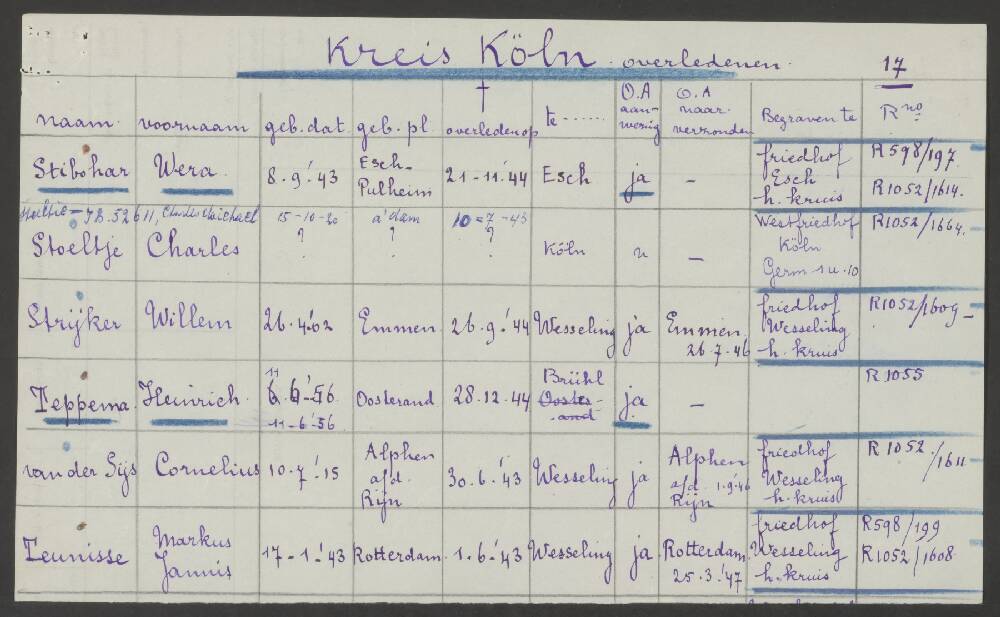 Kreis Köln overledenen. 17
naam. voornaam geb. dat. geb. pl. † overleden op te ...... O.A aanwezig O.A naar verzonden Begraven te R no
Stibohar Wera 8.9.'43 Esch-Pulheim 21-11-'44 Esch ja - friedhof Esch h. kruis R598/197. R1052/1614.
Charles Michael 15-10-20 a'dam 10-7-43
Stoeltje Charles ? ? ? Köln u - Westfriedhof Köln Germ 1u.10 R1052/1664.
Strijker Willem 26.4.'02 Emmen 26.9.'44 Wesseling ja Emmen 26.7.46 friedhof Wesseling h. kruis R1052/1609
Teppema Heinrich. 11 6.6-'56 11-6-'56 Oosterand 28.12.'44 Brühl Oosterand ja - R1055
van der Sijs Cornelius 10.7.'15 Alphen a/d. Rijn 30.6.'43 Wesseling ja Alphen a/d. 1.9.'46 Rijn friedhof Wesseling h. kruis R1052/1611
Teunisse Markus Jannis 17-1-'43 Rotterdam. 1.6.'43 Wesseling ja Rotterdam. 25.3.'47 friedhof Wesseling h. kruis R598/199 R1052/1608